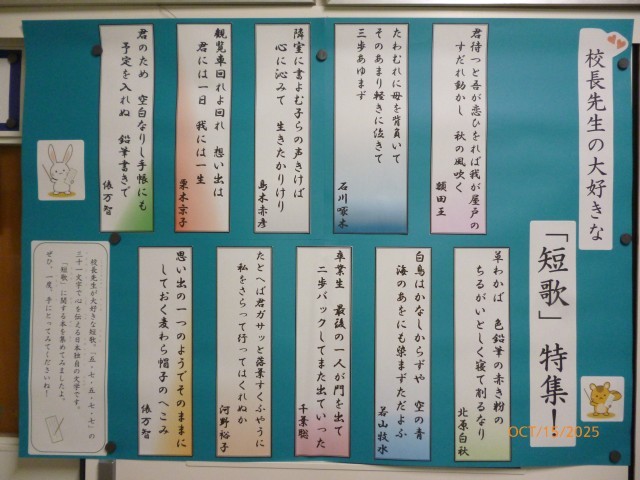 校長先生の大好きな
「短歌」特集！
君待つと吾が恋ひをれば我が屋戸の
すだれ動かし　秋の風吹く
額田王
たわむれに母を背負いて
そのあまり軽きに泣きて
三歩あゆまず
石川啄木
隣室に書よむ子らの声きけば
心に沁みて　生きたかりけり
島木赤彦
観覧車回れよ回れ　想い出は
君には一日　我には一生
栗木京子
君のため　空白なりし手帳にも
予定を入れぬ　鉛筆書きで
俵万智
草わかば　色鉛筆の赤き粉の
ちるがいとしく寝て削るなり
北原白秋
白鳥はかなしからずや　空の青
海のあをにも染まずただよふ
若山牧水
卒業生　最後の一人が門を出て
二歩バックしてまた出ていった
千葉聡
たとへば君ガサッと落葉すくふやうに
私をさらって行ってはくれぬか
河野裕子
思い出の一つのようでそのままに
しておく麦わら帽子のへこみ
俵万智
校長先生が大好きな短歌。「五・七・五・七・七」の
三十一文字で心を伝える日本独自の文学です。
「短歌」に関する本を集めてみましたよ。
ぜひ、一度、手にとってみてくださいね！
OCT/15/2025